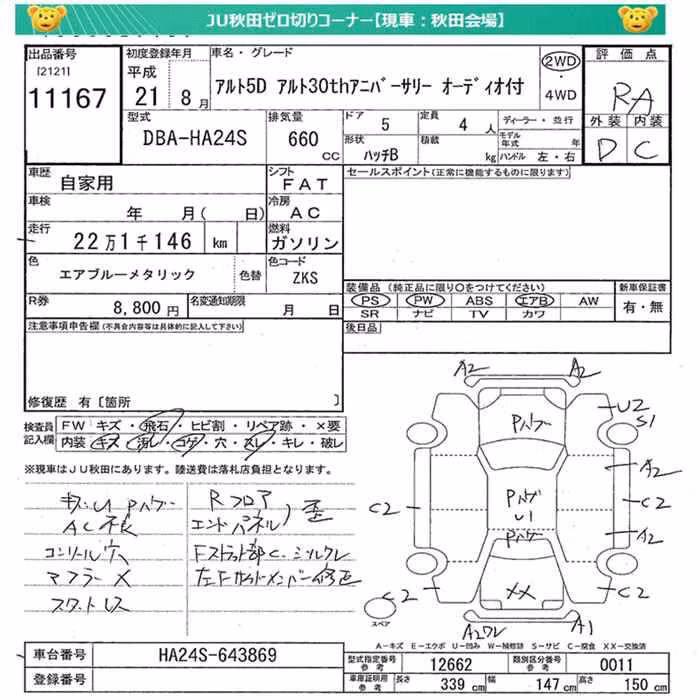 JU秋田ゼロ切りコーナー【現車：秋田会場】
出品番号
[2121]
11167
初度登録年月
平成
21 8月
車名・グレード
アルト5D アルト30thアニバーサリー オーディオ付
2WD
・
4WD
評価点
RA
外装 内装
D C
型式
DBA-HA24S
排気量
660
cc
ドア 5
定員 4 人
ディーラー・並行
モデル年式 年
形状
ハッチB
積載
kg
ハンドル 左・右
車歴
自家用
シフト
FAT
セールスポイント(正常に機能するものに限ります)
車検
年 月( 日)
冷房
AC
走行
22万1千146 km
燃料
ガソリン
色
エアブルーメタリック
色替
色コード
ZKS
装備品 (純正品に限り○をつけてください)
新車保証書
PS PW ABS エアB AW
有・無
SR ナビ TV カワ
R券
8,800円
名変通知期限
月 日
後日品
注意事項申告欄(不具合内容等は具体的に記入して下さい)
修復歴 有〔箇所 〕
検査員
記入欄
FW キズ・飛石・ヒビ割・リペア跡・×要
内装 キズ・汚レ・コゲ・穴・スレ・キレ・破レ
※現車はJU秋田にあります。陸送費は落札店負担となります。
キズU Pハゲ
コンソール穴
マフラーX
Rフロア
エンドパネル) 歪
A2 A2
Pハゲ
U2
S1
A2
C2
Pハゲ
U1
C2
A2
Pハゲ
C2
XX
C2
スペア
A2ワレ
A1
A-キズ E-エクボ U-凹み W-補修跡 S-サビ C-腐食 XX-交換済
車台番号
HA24S-643869
登録番号
型式指定番号
参考
12662
類別区分番号
参考
0011
車庫証明用
参考
長さ 339 cm
幅 147 cm
高さ 150 cm